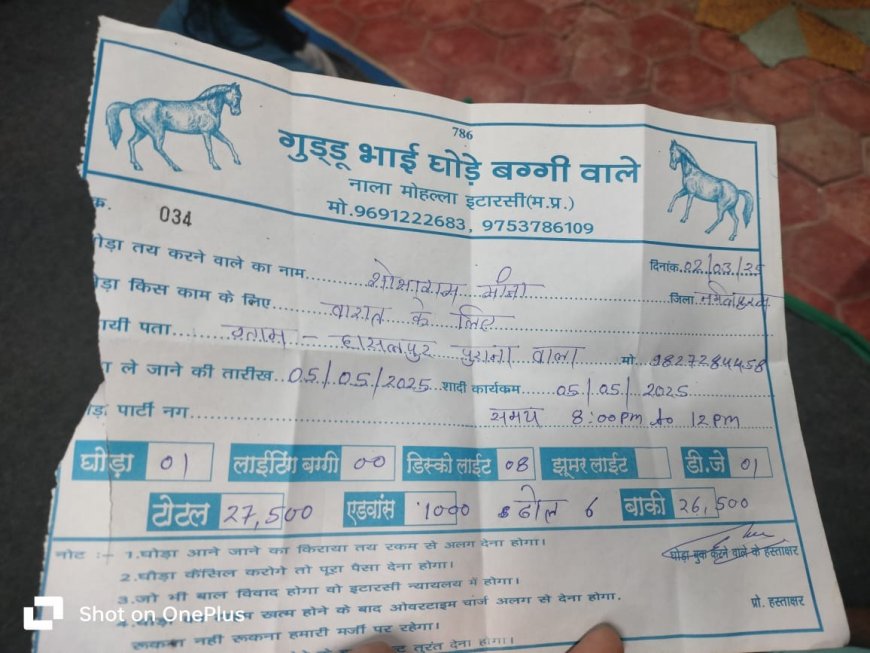 786
गुड्डू भाई घोड़े बग्गी वाले
नाला मोहल्ला इटारसी(म.प्र.)
मो.9691222683, 9753786109
क. 034
दिनांक..02/03/25
ोड़ा तय करने वाले का नाम....शोभाराम मीना
ोड़ा किस काम के लिए....बारात के लिए
जिला
ायी पता....ग्राम - हासलपुर पुराना वाला मो 9827284458
ा ले जाने की तारीख..05/05/2025 शादी कार्यकम..05/05/2025
पार्टी नग.... समय 8:00pm to 12pm
घोड़ा 01 लाईटिंग बग्गी 00 डिस्को लाईट 08 झूमर लाईट डी.जे 01
टोटल 27,500 एडवांस 1000 ढोल 6 बाकी 26,500
नोट :- 1.घोड़ा आने जाने का किराया तय रकम से अलग देना होगा।
घोड़ा बुक करने वाले के हस्ताक्षर
2.घोड़ा कैंसिल करोगे तो पूरा पैसा देना होगा।
3.जो भी बाल विवाद होगा वो इटारसी न्यायलय में होगा।
खत्म होने के बाद ओवरटाइम चार्ज अलग से देना होगा.
प्रो. हस्ताक्षर
रूकना नहीं रूकना हमारी मर्जी पर रहेगा।
तुरंत देना होगा।
Shot on OnePlus